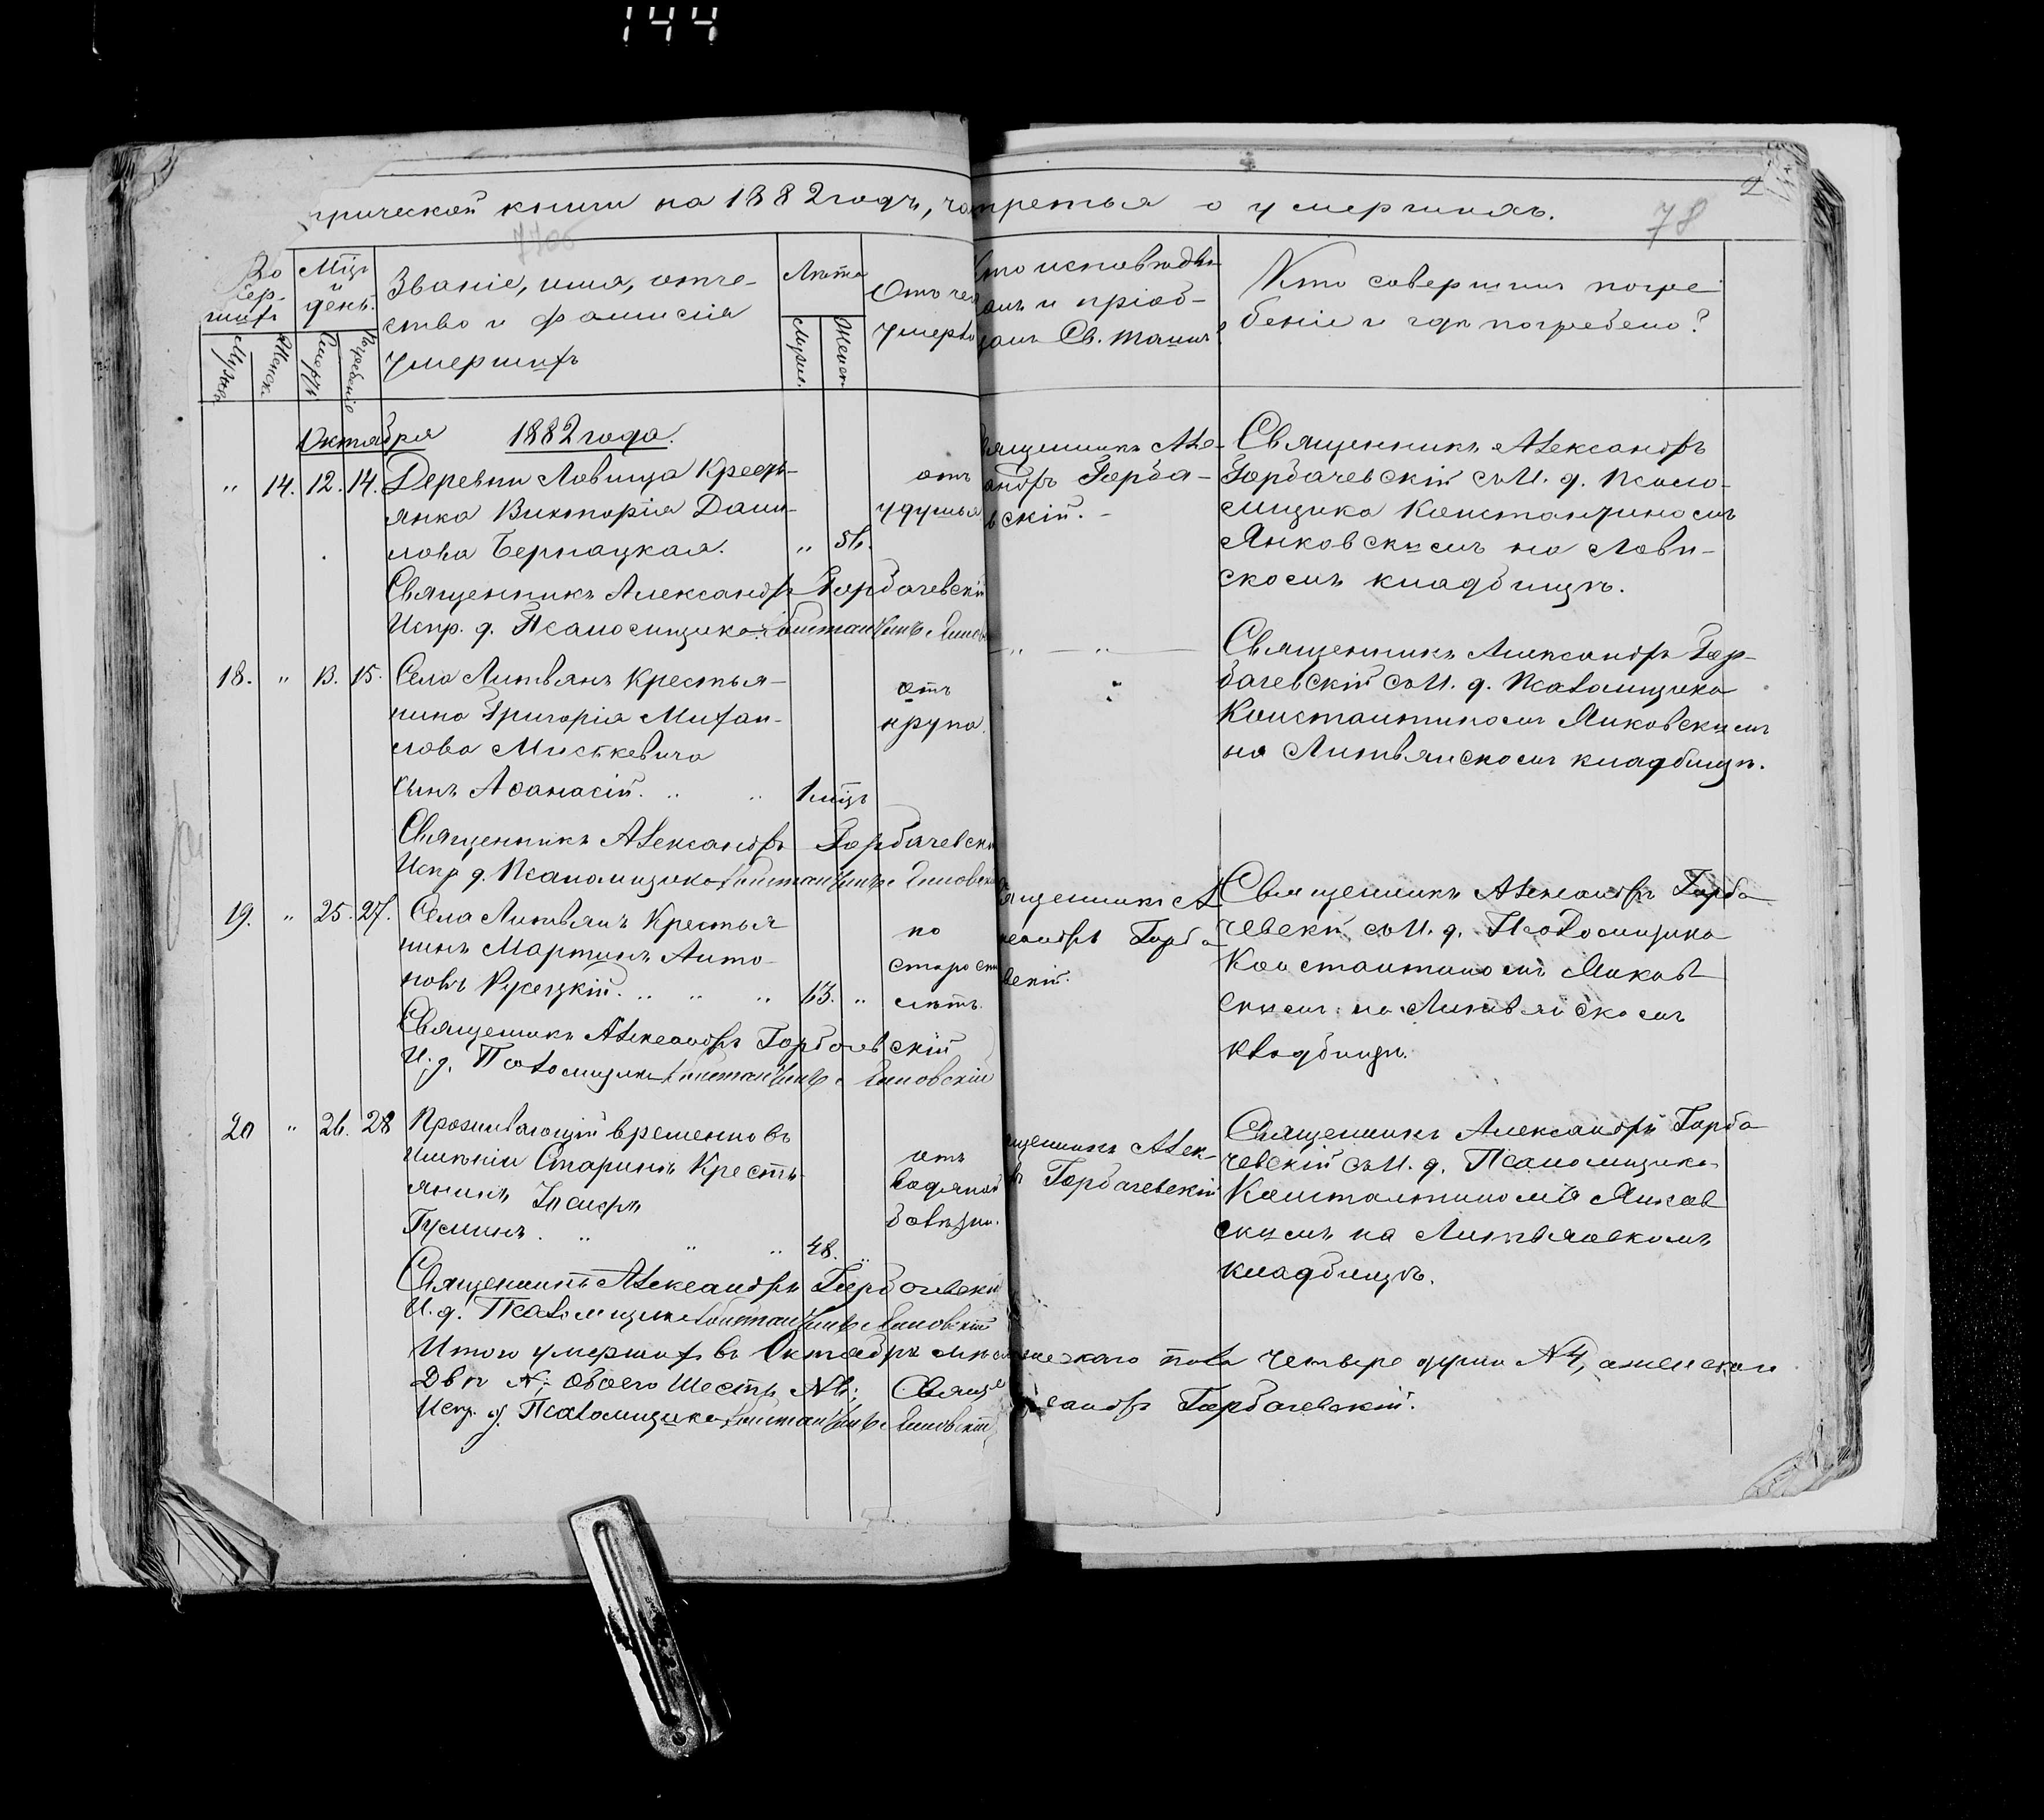 144
2
78
рической книги на 1882 годъ, часть третья о умершихъ.
Мѣц. и день.
Званіе, имя, отче-
ство и фамилія
умершихъ
Лѣта
Отъ чего
умеръ
Кто исповѣды-
валъ и пріоб-
щалъ Св. таинъ?
Кто совершилъ погре
беніе и гдѣ погребено?
Мужск.
Женск.
Смерти.
Погребенія
Мужск.
Женск.
Октября 1882 года.
" 14. 12. 14. Деревни Ловища Кресть-
янка Викторія Дани-
лова Бернацкая. " 56.
отъ
удушья
Священникъ Але-
андръ Горба-
вскій.
Священникъ Александръ
Горбачевскій съ И. д. Псало-
мщика Константиномъ
Янковскимъ на Лови-
скомъ кладбищѣ.
Священникъ Александръ Горбачевскій
Испр. д. Псаломщика Константинъ Янков
18. " 13. 15. Села Литвянъ Крестья-
нина Григорія Михаи-
лова Миськевича
сынъ Аѳанасій. " " 1 мѣц
отъ
крупа.
— " — " —
Священникъ Александръ Гор-
бачевскій съ И. д. Псаломщика
Константиномъ Янковскимъ
на Литвянскомъ кладбищѣ.
Священникъ Александръ Горбачевскій
Испр д. Псаломщика Константинъ Янковскій
19. " 25. 27. Села Литвянъ Крестья
нинъ Мартинъ Анто-
новъ Ружецкій. " " " 63. "
по
старости
лѣтъ.
Священникъ Ал
ксандръ Горба
вскій.
Священникъ Александръ Горба
чевскій съ И. д. Псаломщика
Константиномъ Янков
скимъ на Литвянскомъ
кладбищѣ.
Священникъ Александръ Горбачевскій
И. д. Псаломщика Константинъ Янковскій
20 " 26. 28 Проживающій временно въ
имѣніи Старинѣ Кресть-
янинъ
" " " 48. "
отъ
водяной
болѣзни.
щенникъ Алек-
ъ Горбачевскій
Священникъ Александръ Горба
чевскій съ И. д. Псаломщика
Константиномъ Янков
скимъ на Литвянскомъ
кладбищѣ.
Священникъ Александръ Горбачевскій
И. д. Псаломщика Константинъ Янковскій
Итого умершихъ въ Октябрѣ мѣсяцѣ мужескаго пола четыре души №4, женскаго
Двѣ № обоего Шесть №6: Священникъ Александръ Горбачевскій.
Испр. д. Псаломщика Константинъ Янковскій